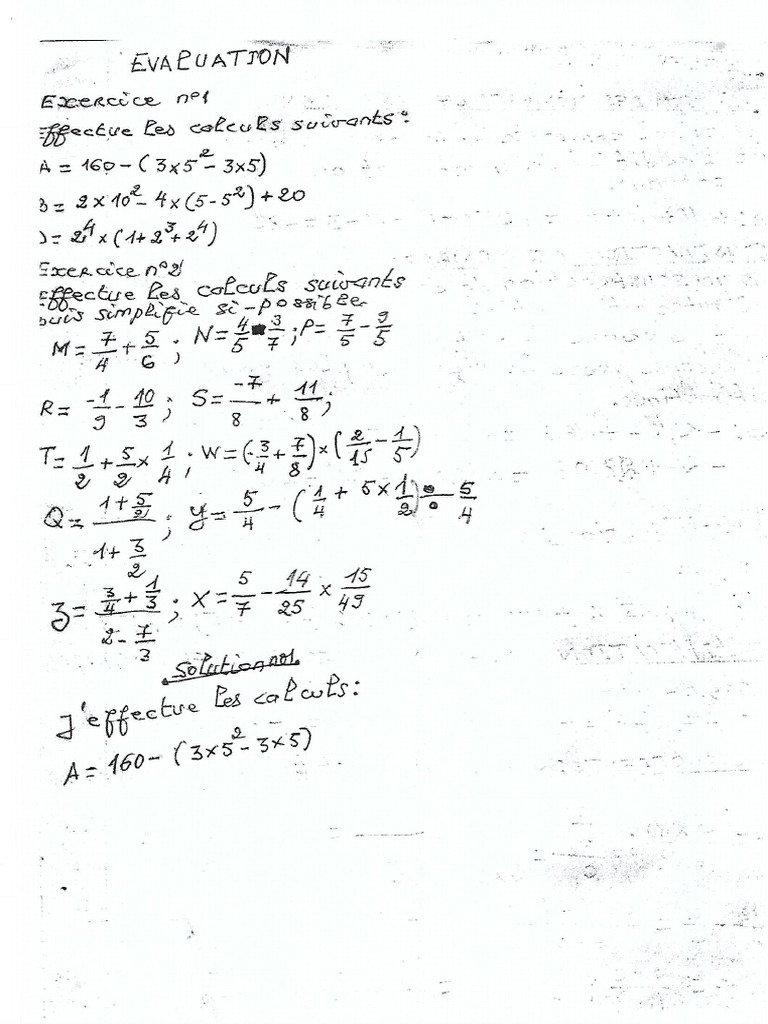 EVALUATION
Exercice n°1
Effectue les calculs suivants:
A = 160 - (3×5² - 3×5)
B = 2×10² - 4×(5-5²) + 20
D = 2⁴×(1+2³+2⁴)
Exercice n°2
Effectue les calculs suivants
puis simplifie si-possible
M = 7/4 + 5/6 ; N = 4/5 3/7 ; P = 7/5 - 9/5
R = -1/9 - 10/3 ; S = -7/8 + 11/8 ;
T = 1/2 + 5/2 × 1/4 ; W = (-3/4 + 7/8) × (2/15 - 1/5)
Q = (1+5/2)/(1+3/2) ; y = 5/4 - (1/4 + 5×1/2) ÷ 5/4
z = (3/4 + 1/3)/(2 - 7/3) ; X = 5/7 - 14/25 × 15/49
Solution n°1
J'effectue les calculs:
A = 160 - (3×5² - 3×5)